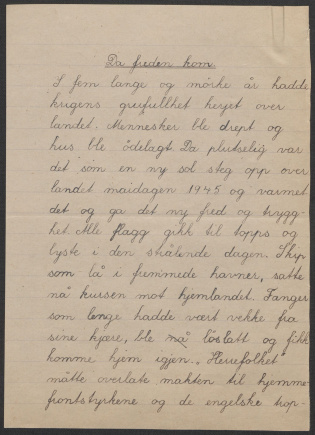 Da freden kom
I fem lange og mörke år hadde
krigens grufullhet herjet over
landet. Mennesker ble drept og
hus ble ödelagt. Da plutselig var
det som en ny sol steg opp over
landet maidagen 1945 og varmet
det og ga det ny fred og trygg-
het. Alle flagg gikk til topps og
lyste i den strålende dagen. Skip
som lå i fremmede havner, satte
nå kursen mot hjemlandet. Fanger
som lenge hadde vært vekke fra
sine kjære, ble nå löslatt og fikk
komme hjem igjen. "Herrefolket"
måtte overlate makten til hjemme-
frontstyrkene og de engelske trop-